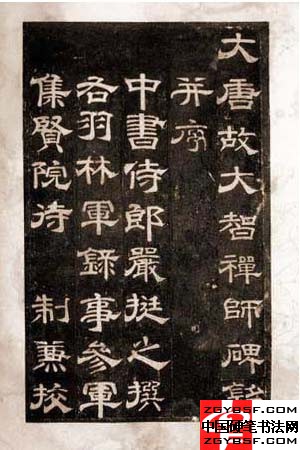 大唐故大智禪師碑銘
并序
中書侍郎嚴挺之撰
右羽林軍錄事參軍
集賢院待 制兼挍
ZGYBSF.COM
中国硬笔书法网
ZGYBSF.COM